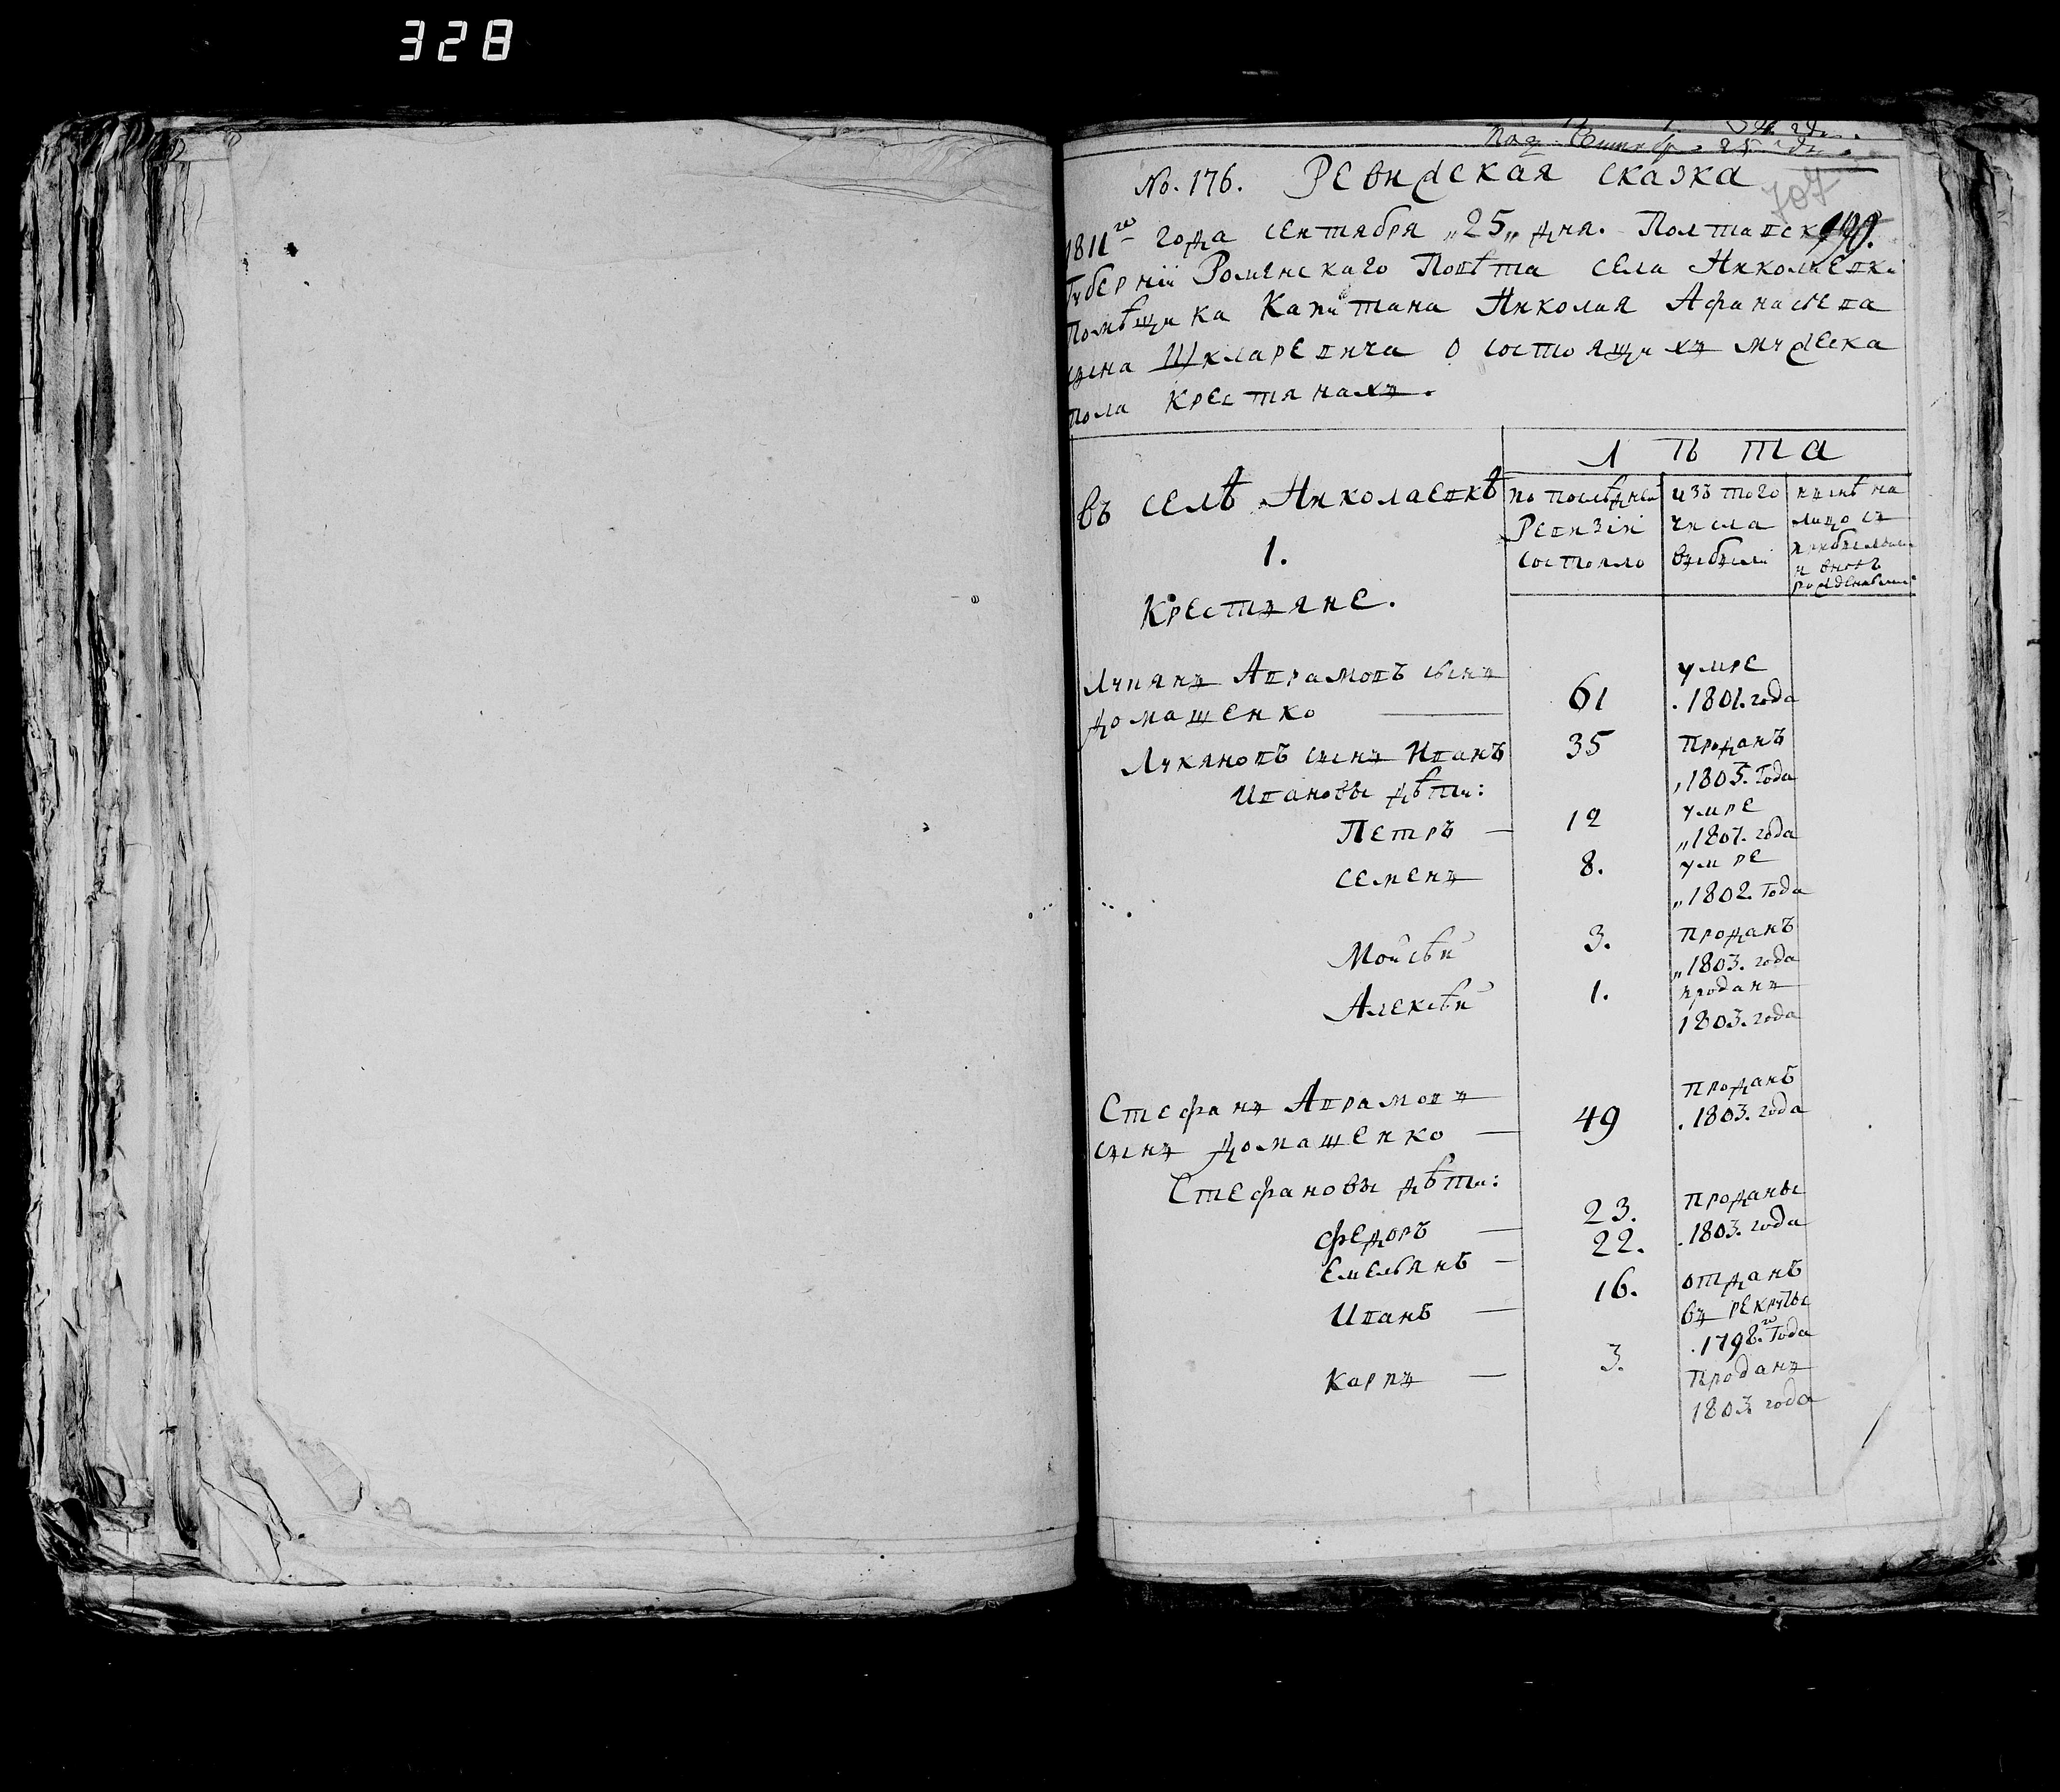 328
25
707
No. 176. Ревижская сказка
1811го года сентября „25„ дня. Полтавск
Губерніи Роменскаго Повѣта села Николаевки
Помѣщика Капитана Николая Афанасьева
сына Шкларевича о состоящихъ мужеска
пола крестянахъ.
Лѣта
въ селѣ Николаевкѣ
1.
Крестъяне.
по послѣдней
Ревизіи
состояло
изъ того
числа
выбыли
нынѣ на
лицо съ
прибылыми
и вновь
рожденными
Лукянъ Аврамовъ сынъ
Домашенко
61
умре
.1801. года
Лукяновъ сынъ Иванъ
35
проданъ
,1803. года
Ивановы дѣти:
Петръ —
12
умре
„1807. года
Семенъ
8.
умре
„1802. года
Мойсѣй
3.
проданъ
„1803. года
Алексѣй
1.
проданъ
1803. года
Стефанъ Аврамовъ
сынъ Домашенко —
49
проданъ
.1803. года
Стефановы дѣти:
Федоръ —
23.
проданы
.1803. года
Емельянъ —
22.
Иванъ —
16.
отданъ
въ рекруты
.1798.го года
Карпъ —
3.
проданъ
1803 года